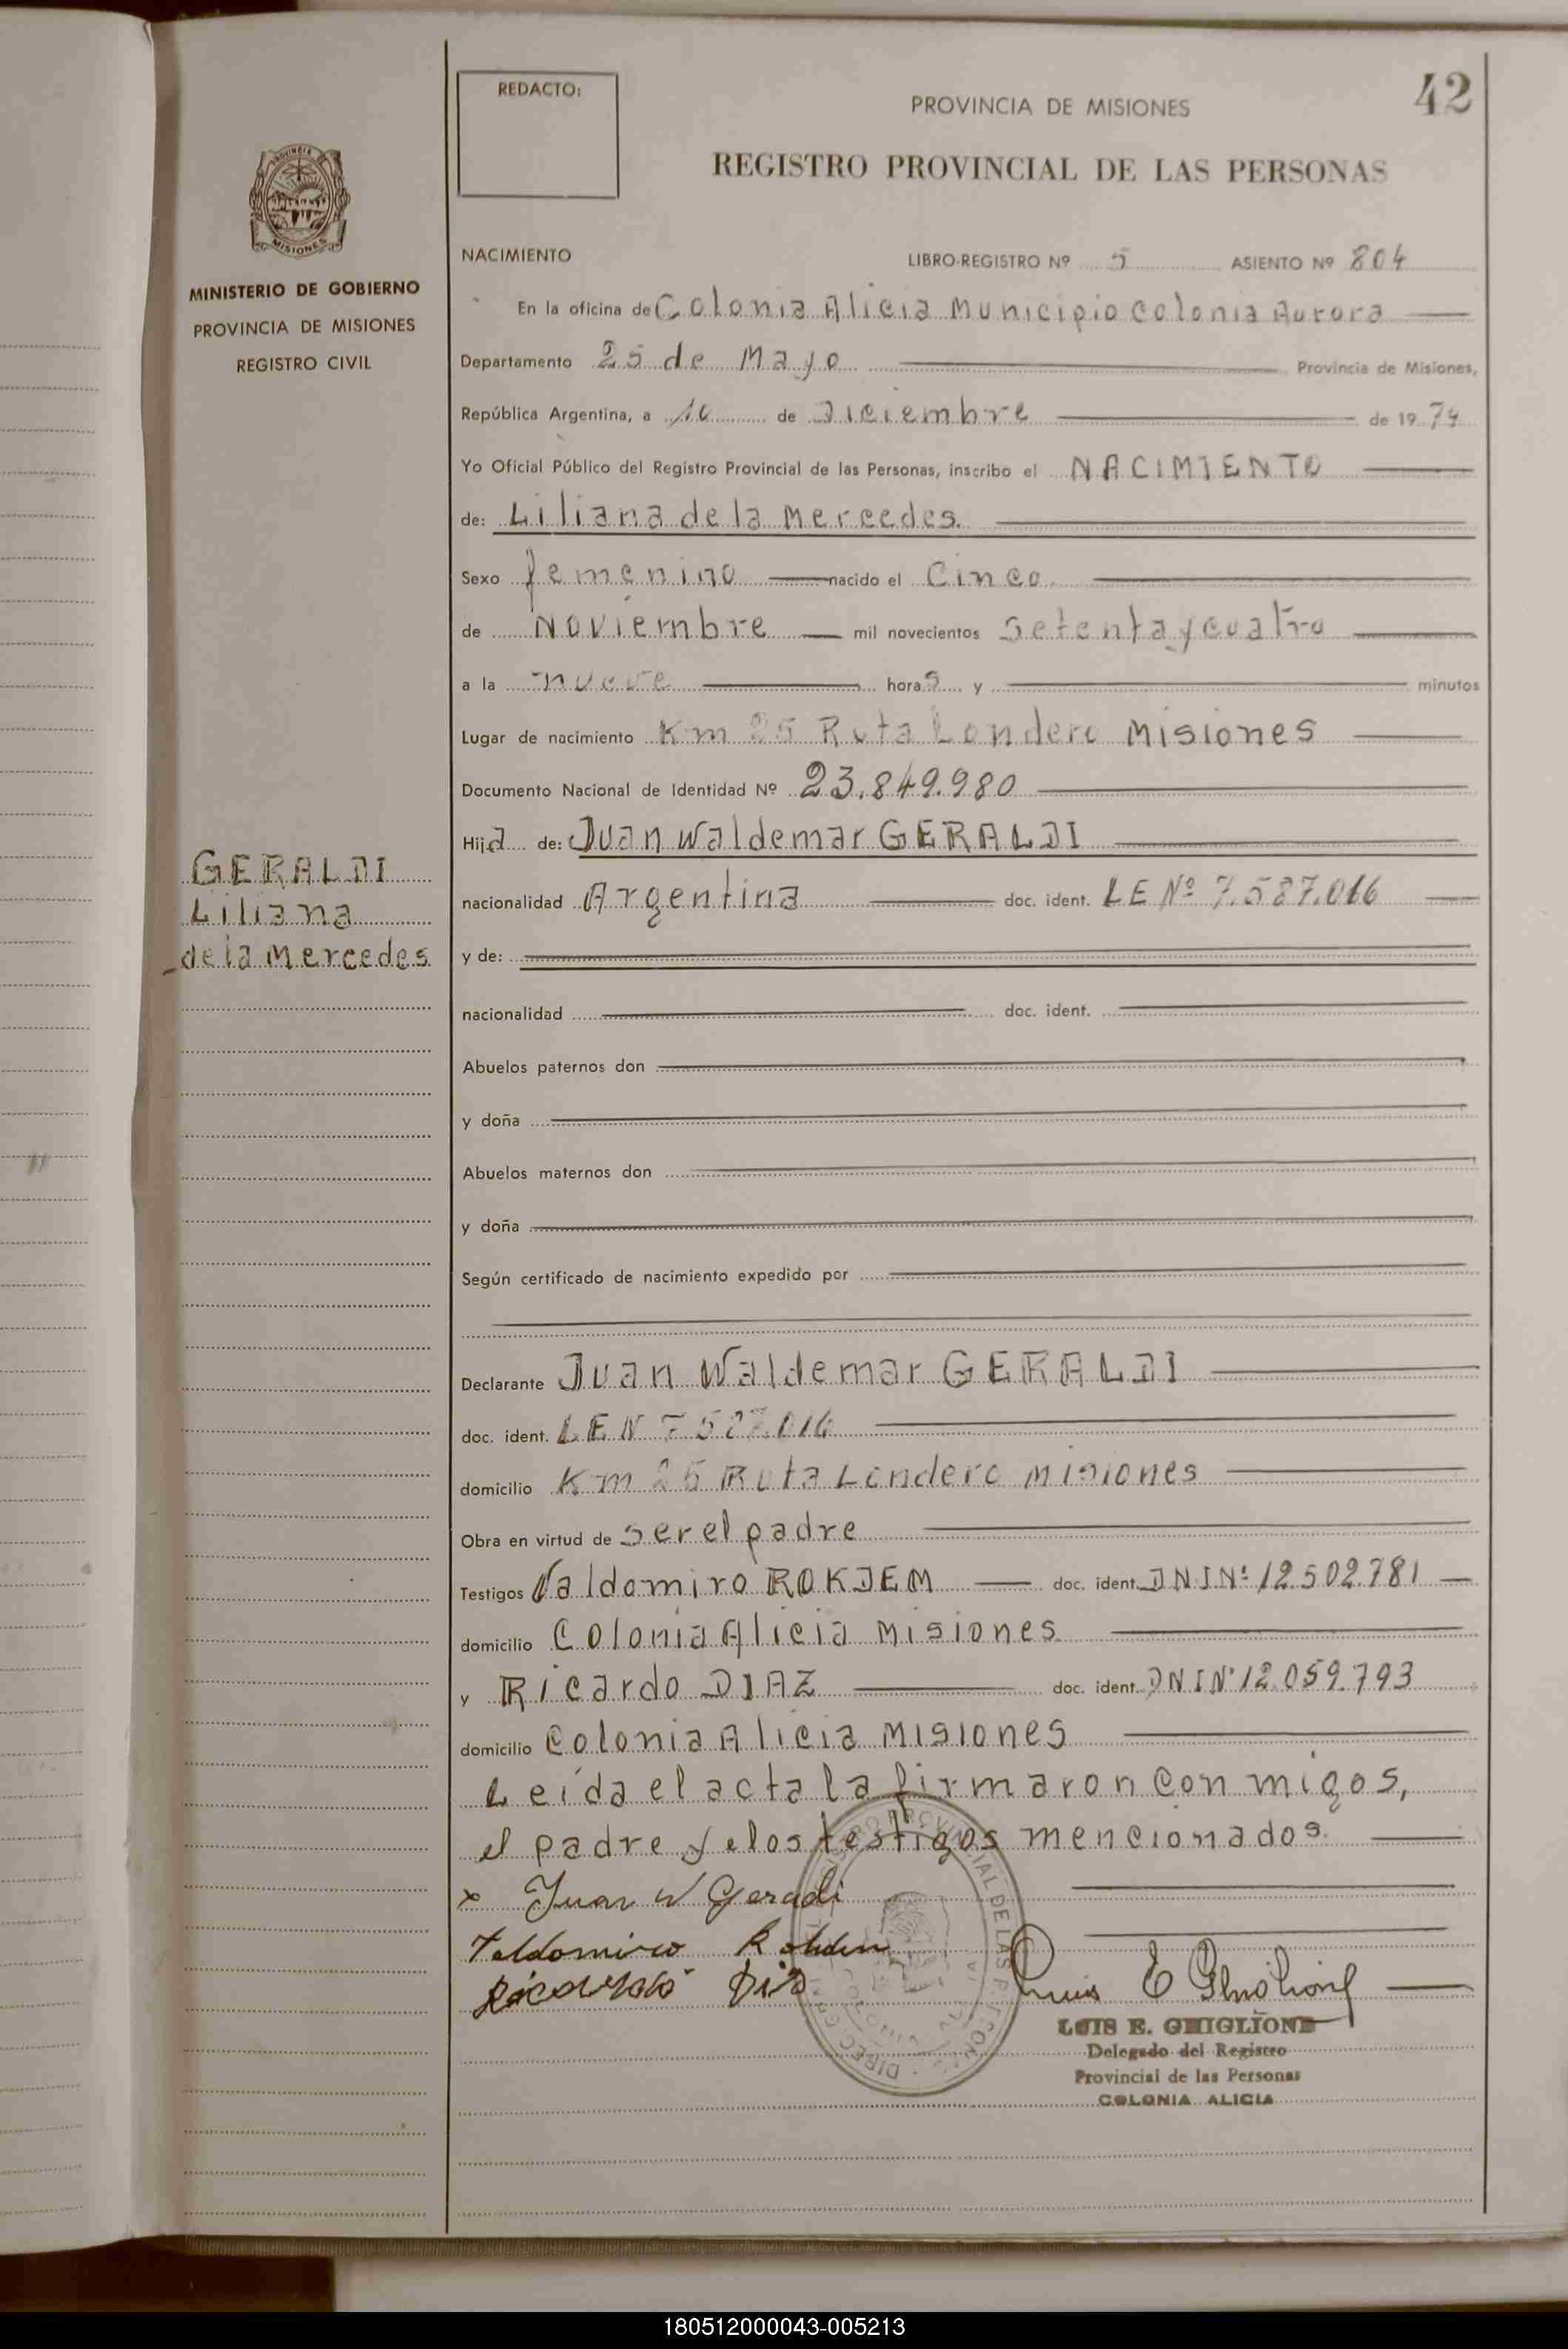 42
REDACTO:
PROVINCIA DE MISIONES
REGISTRO PROVINCIAL DE LAS PERSONAS
PROVINCIA DE
MISIONES
MINISTERIO DE GOBIERNO
PROVINCIA DE MISIONES
REGISTRO CIVIL
GERALDI
Liliana
de la Mercedes
NACIMIENTO LIBRO-REGISTRO Nº 5 ASIENTO Nº 804
En la oficina de Colonia Alicia Municipio Colonia Aurora
Departamento 25 de Mayo Provincia de Misiones,
República Argentina, a 10 de Diciembre de 1974
Yo Oficial Público del Registro Provincial de las Personas, inscribo el NACIMIENTO
de: Liliana de la Mercedes.
Sexo femenino nacido el Cinco.
de Noviembre mil novecientos Setenta y cuatro
a la nueve horas y minutos
Lugar de nacimiento Km 25 Ruta Londero Misiones
Documento Nacional de Identidad Nº 23.849.980
Hija de: Juan Waldemar GERALDI
nacionalidad Argentina doc. ident. LE Nº 7.587.016
y de:
nacionalidad doc. ident.
Abuelos paternos don
y doña
Abuelos maternos don
y doña
Según certificado de nacimiento expedido por
Declarante Juan Waldemar GERALDI
doc. ident. LE N 7.587.016
domicilio Km 25 Ruta Londero Misiones
Obra en virtud de ser el padre
Testigos Valdomiro ROKJEM doc. ident. DNI Nº 12.502.781
domicilio Colonia Alicia Misiones
y Ricardo DIAZ doc. ident. DNI Nº 12.059.793
domicilio Colonia Alicia Misiones
Leída el acta la firmaron con migos,
el padre y elos testigos mencionados.
x Juan W Geraldi
Valdomiro
Ricardo
Luis E Ghiglione
LUIS E. GHIGLIONE
Delegado del Registro
Provincial de las Personas
COLONIA ALICIA
180512000043-005213